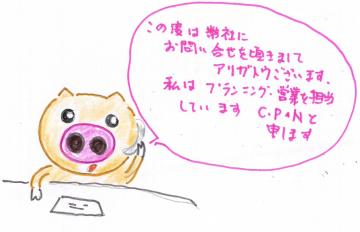 この度は弊社に
お問い合せを頃きまして
アリガトウございます.
私は プランニング、営業を担当
しています C.P.Nと
申します